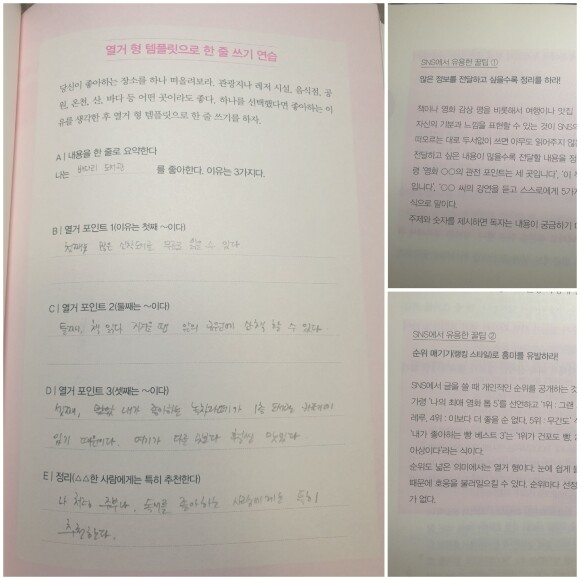 열거 형 템플릿으로 한 줄 쓰기 연습
당신이 좋아하는 장소를 하나 떠올려보라. 관광지나 레저 시설, 음식점, 공
원, 온천, 산, 바다 등 어떤 곳이라도 좋다. 하나를 선택했다면 좋아하는 이
유를 생각한 후 열거 형 템플릿으로 한 줄 쓰기를 하자.
A | 내용을 한 줄로 요약한다
나는 도서관 를 좋아한다. 이유는 3가지다.
B | 열거 포인트 1(이유는 첫째 ~이다)
첫째로 많은 무료로 수 있다
C | 열거 포인트 2(둘째는 ~이다)
둘째, 책 읽다 산책 할 수 있다.
D | 열거 포인트 3(셋째는 ~이다)
셋째, 내가 좋아하는 1층 카페에
있기 때문이다. 맛있다
E | 정리(△△한 사람에게는 특히 추천한다)
나 처럼 좋아하는 사람에게는 특히
추천한다.
SNS에서 유용한 꿀팁 ①
많은 정보를 전달하고 싶을수록 정리를 하라!
책이나 영화 감상 평을 비롯해서 여행이나 맛집
자신의 기분과 느낌을 표현할 수 있는 것이 SNS의
떠오르는 대로 두서없이 쓰면 아무도 읽어주지 않는
전달하고 싶은 내용이 많을수록 전달할 내용을 정
령 '영화 ○○의 관전 포인트는 세 곳입니다', '이 
입니다', '○○ 씨의 강연을 듣고 스스로에게 5가지
식으로 말이다.
주제와 숫자를 제시하면 독자는 내용이 궁금하기 
SNS에서 유용한 꿀팁 ②
순위 매기기(랭킹 스타일)로 흥미를 유발하라!
SNS에서 글을 쓸 때 개인적인 순위를 공개하는 것
가령 '나의 최애 영화 톱 5'를 선언하고 '1위 : 그랜
레루, 4위 : 이보다 더 좋을 순 없다. 5위 : 무간도'
'내가 좋아하는 빵 베스트 3'는 '1위가 건포도 빵,
이상이다'라는 식이다.
순위도 넓은 의미에서는 열거 형이다. 눈에 쉽게 들
때문에 호응을 불러일으킬 수 있다. 순위마다 선정
가 없다.